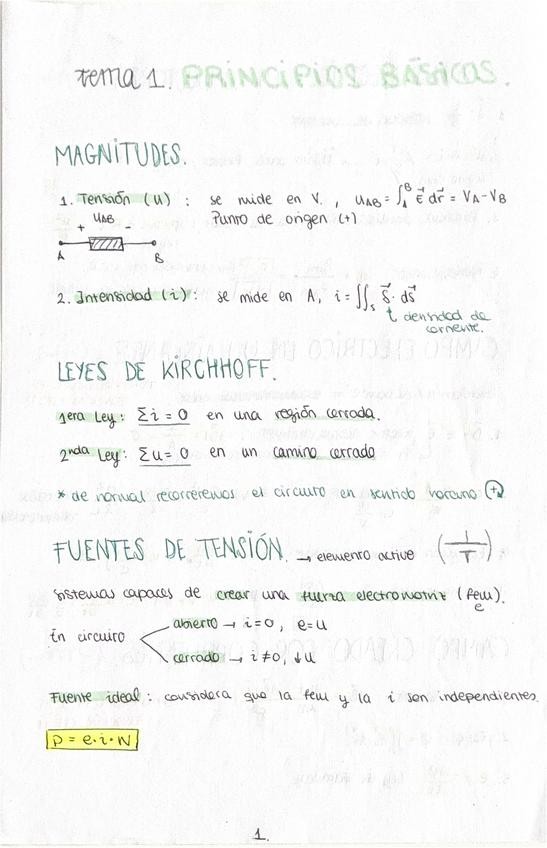 tema 1. PRINCIPIOS BÁSICOS.
MAGNITUDES.
1. Tensión (u) : se mide en V. , u_AB = ∫_A^B ε⃗ dr⃗ = V_A - V_B
Punto de origen (+)
+ u_AB -
A B
2. Intensidad (i) : se mide en A, i = ∬_S δ⃗ · ds⃗
densidad de
corriente.
LEYES DE KIRCHHOFF.
1era Ley : Σi = 0 en una región cerrada.
2nda Ley : Σu = 0 en un camino cerrado
* de normal recorreremos el circuito en sentido horario
FUENTES DE TENSIÓN. → elemento activo
sistemas capaces de crear una fuerza electromotriz (fem).
e
En circuito
abierto → i=0, e=u
cerrado → i≠0, ↓u
Fuente ideal : considera que la fem y la i son independientes.
p = e·i·W
1.